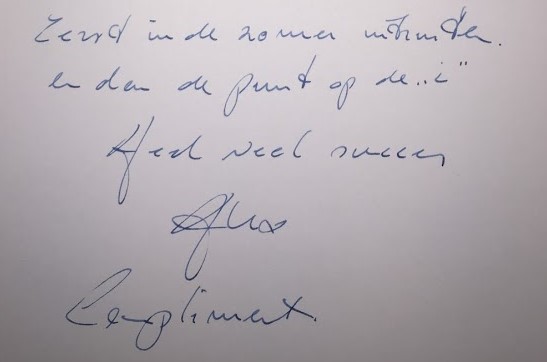 Eerst in de zomer uitrusten.
en dan de punt op de „i"
Heel veel succes
Compliment.